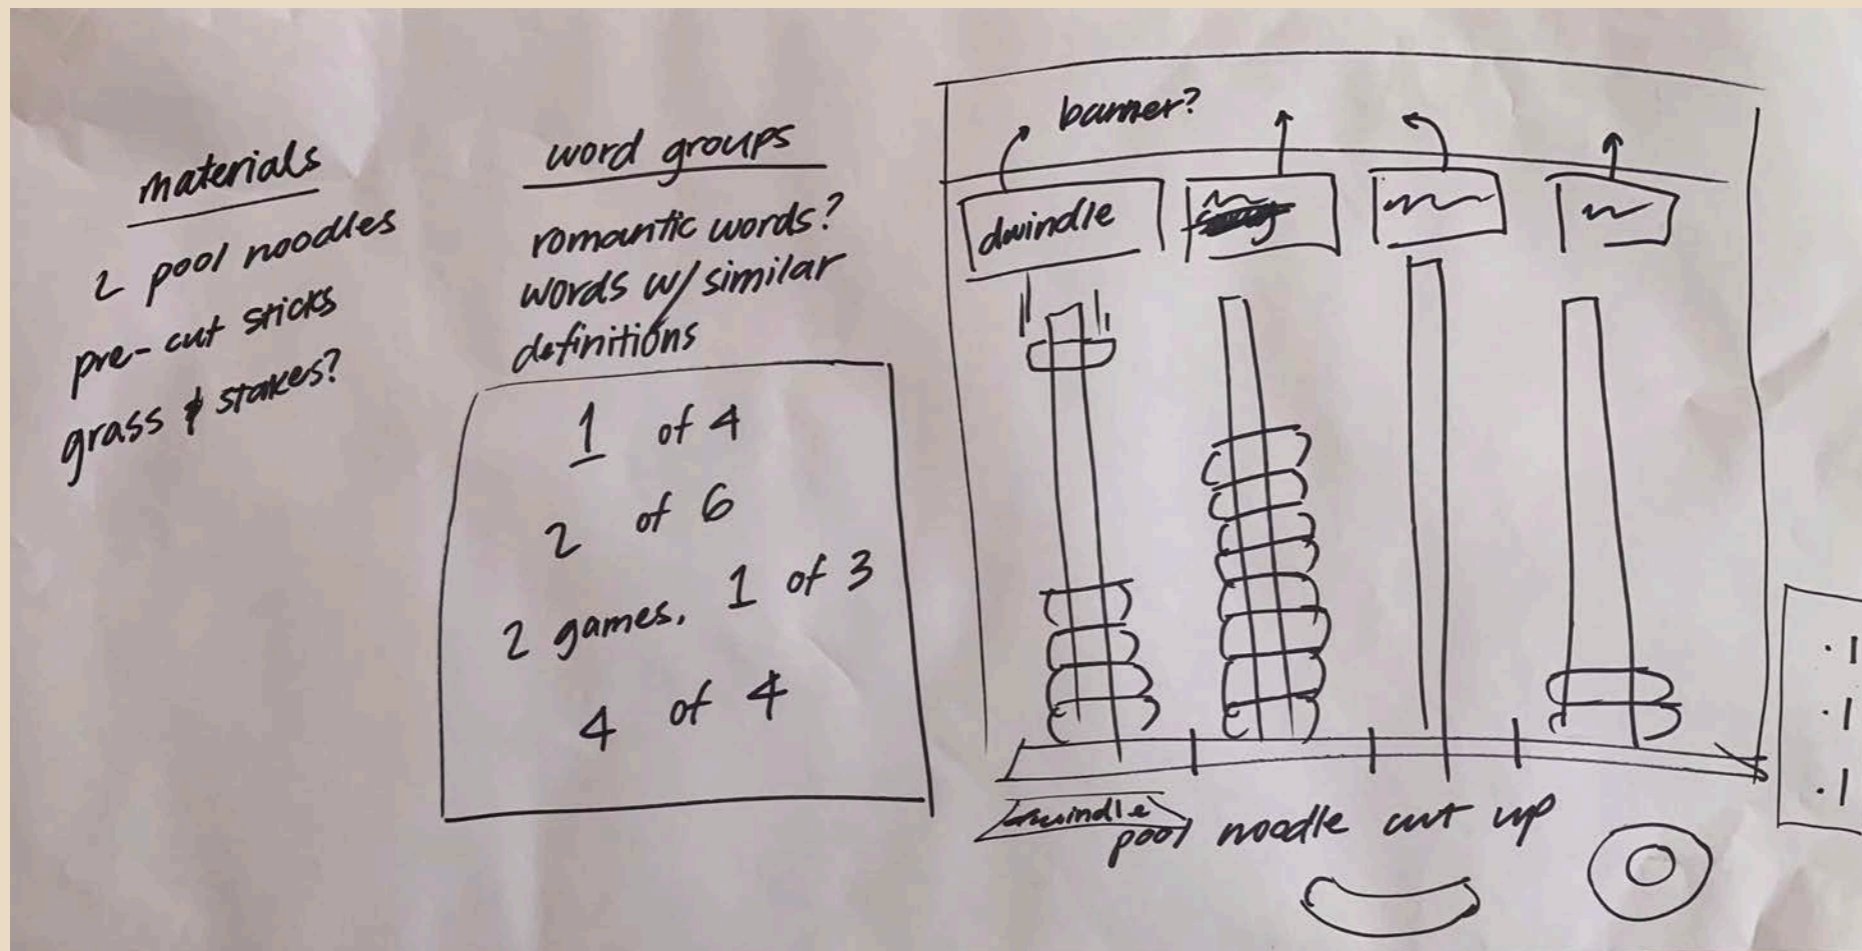 materials
2 pool noodles
pre-cut sticks
grass & stakes?
word groups
romantic words?
words w/ similar
definitions
1 of 4
2 of 6
2 games. 1 of 3
4 of 4
banner?
dwindle
pool noodle cut up